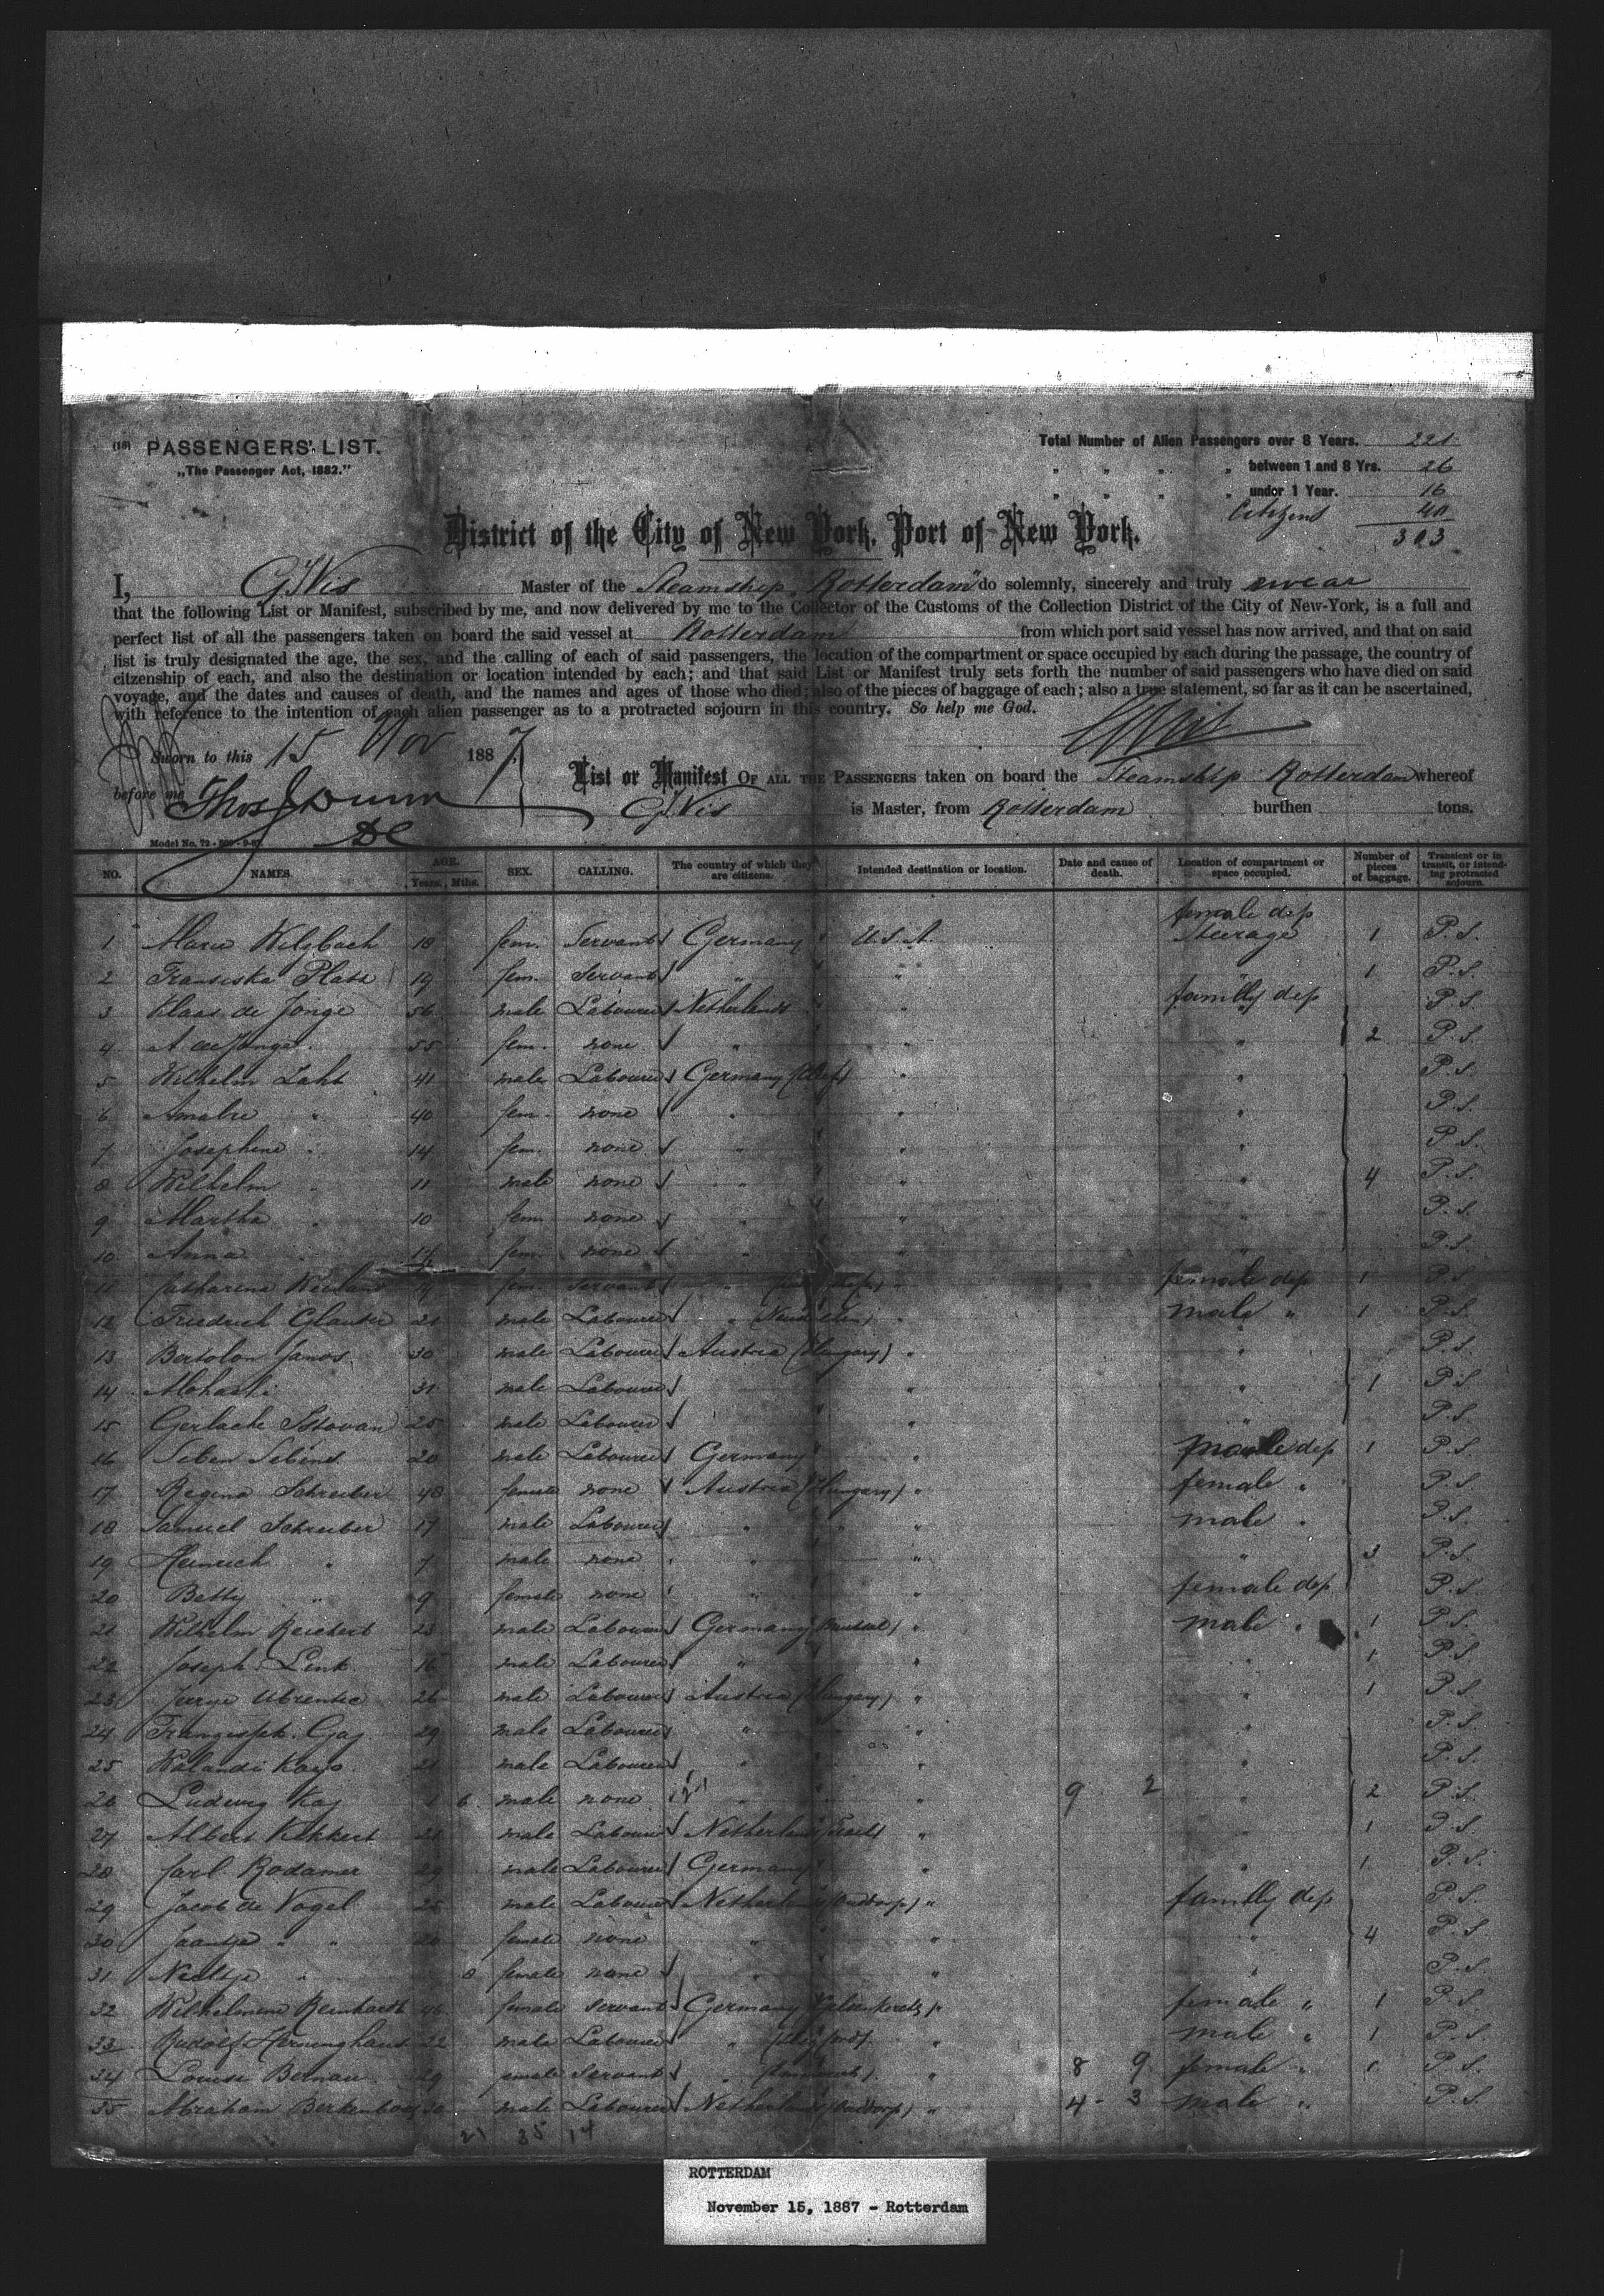 (18) PASSENGERS' LIST.
„The Passenger Act, 1882."
Total Number of Alien Passengers over 8 Years. 221
" " " " between 1 and 8 Yrs. 26
" " " " under 1 Year. 16
Citizens 40
303
District of the City of New York, Port of New York.
I, G. Vis Master of the Steamship „Rotterdam" do solemnly, sincerely and truly swear
that the following List or Manifest, subscribed by me, and now delivered by me to the Collector of the Customs of the Collection District of the City of New-York, is a full and
perfect list of all the passengers taken on board the said vessel at Rotterdam from which port said vessel has now arrived, and that on said
list is truly designated the age, the sex, and the calling of each of said passengers, the location of the compartment or space occupied by each during the passage, the country of
citzenship of each, and also the destination or location intended by each; and that said List or Manifest truly sets forth the number of said passengers who have died on said
voyage, and the dates and causes of death, and the names and ages of those who died; also of the pieces of baggage of each; also a true statement, so far as it can be ascertained,
with reference to the intention of each alien passenger as to a protracted sojourn in this country. So help me God.
G Vis
Sworn to this 15 Nov 1887
before me Thos J Dunn
DC
List or Manifest OF ALL THE PASSENGERS taken on board the Steamship Rotterdam whereof
G. Vis is Master, from Rotterdam burthen tons.
Model No. 72
NO. NAMES. AGE. Years. Mths. SEX. CALLING. The country of which they are citizens. Intended destination or location. Date and cause of death. Location of compartment or space occupied. Number of pieces of baggage. Transient or in transit, or intending protracted sojourn.
1 Marie Welzbach 18 fem. Servant Germany U.S.A. female dep Steerage 1 P.S.
2 Franciska Platz 19 fem. Servant " " 1 P.S.
3 Klaas de Jonge 56 male Labourer Netherlands " familly dep P.S.
4 A. de Jonge 55 fem. none " " " 2 P.S.
5 Wilhelm Laht 41 male Labourer Germany " " P.S.
6 Amalie " 40 fem. none " " " P.S.
7 Josephine " 14 fem. none " " " P.S.
8 Wilhelm " 11 male none " " " 4 P.S.
9 Martha " 10 fem. none " " " P.S.
10 Anna " fem. none " " " P.S.
11 Catharina fem. Servant " " female dep 1 P.S.
12 Friedrich Glauser 21 male Labourer " " male " 1 P.S.
13 Bertolon Janos 30 male Labourer Austria (Hungary) " " P.S.
14 31 male Labourer " " 1 P.S.
15 Gerlach Istovan 25 male Labourer " " P.S.
16 Seben Sebins 20 male Labourer Germany " male dep 1 P.S.
17 Regina Schreiber 48 female none Austria (Hungary) " female " P.S.
18 Samuel Schreiber 17 male Labourer " " male " P.S.
19 Heinrich " 7 male none " " " 3 P.S.
20 Betty " 9 female none " " female dep P.S.
21 Wilhelm Reichert 23 male Labourer Germany " male " 1 P.S.
22 Joseph Link 16 male Labourer " " " 1 P.S.
23 Jurge 26 male Labourer Austria (Hungary) " " 1 P.S.
24 Gaj 29 male Labourer " " " P.S.
25 21 male Labourer " " " P.S.
26 Ludwig Kaj 1 6 male none " " 9 2 " 2 P.S.
27 Albert Kikkert 21 male Labourer Netherlands " " 1 P.S.
28 Carl Rodamer 29 male Labourer Germany " " 1 P.S.
29 Jacob de Vogel 25 male Labourer Netherlands (Ouddorp) " familly dep P.S.
30 Jaantje " " female none " " " 4 P.S.
31 Neeltje " 8 female none " " " P.S.
32 Wilhelmine Reinhardt 46 female servant Germany " female " 1 P.S.
33 Rudolf 22 male Labourer " " male " 1 P.S.
34 Louise Bernau 29 female Servant " " 8 9 female " 1 P.S.
35 Abraham male Labourer Netherlands (Ouddorp) " 4 - 3 male " P.S.
21 35 14
ROTTERDAM
November 15, 1887 - Rotterdam